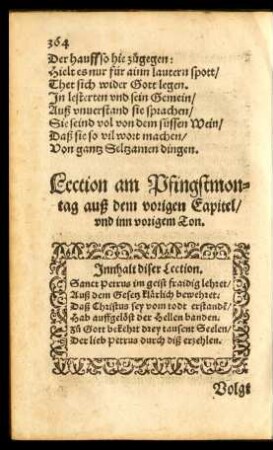 364
Der hauff so hie zůgegen:
Hielt es nur für ainn lautern spott/
Thet sich wider Gott legen.
In lesterten vnd sein Gemein/
Auß vnuerstand sie sprachen/
Sie seind vol von dem süssen Wein/
Daß sie so vil wort machen/
Von gantz Seltzamen dingen.
Lection am Pfingstmon-
tag auß dem vorigen Capitel/
vnd inn vorigem Ton.
Innhalt diser Lection.
Sanct Petrus im geist fraidig lehret/
Auß dem Gesetz klärlich bewehret:
Daß Christus sey vom todt erstandē/
Hab auffgelöst der Hellen banden.
Zů Gott bekehrt drey tausent Seelen/
Der lieb Petrus durch diß erzehlen.
Volgt